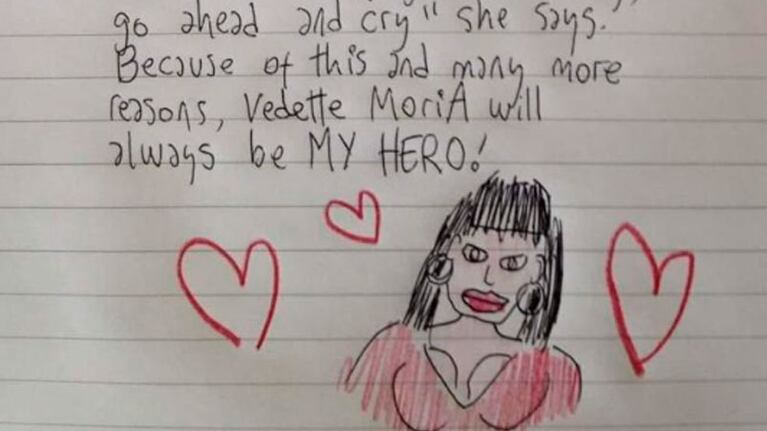 go ahead and cry" she says."
Because of this and many more
reasons, Vedette MoriA will
always be MY HERO!